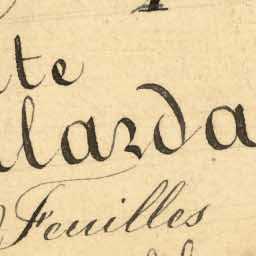 te
larda
Feuilles